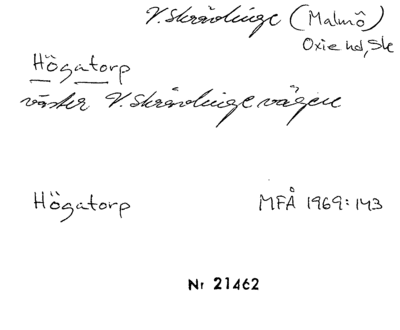 V. Skrävlinge (Malmö)
Oxie hd, Sk
Högatorp
väster V. Skrävlingevägen
Högatorp MFÅ 1969:143
Nr 21462